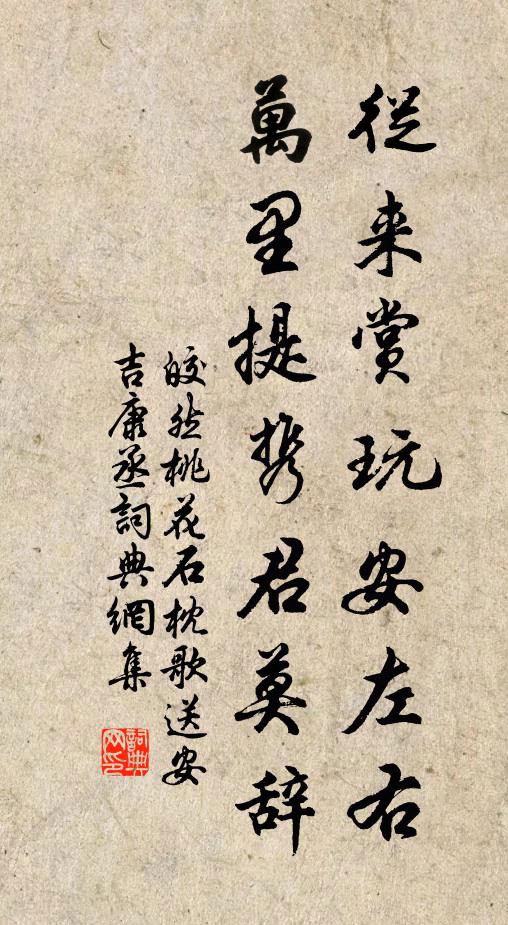 從来賞玩安左右
萬里提携君莫辞
皎然桃花石枕歌送安
吉康丞詞典網集
詞典
网印